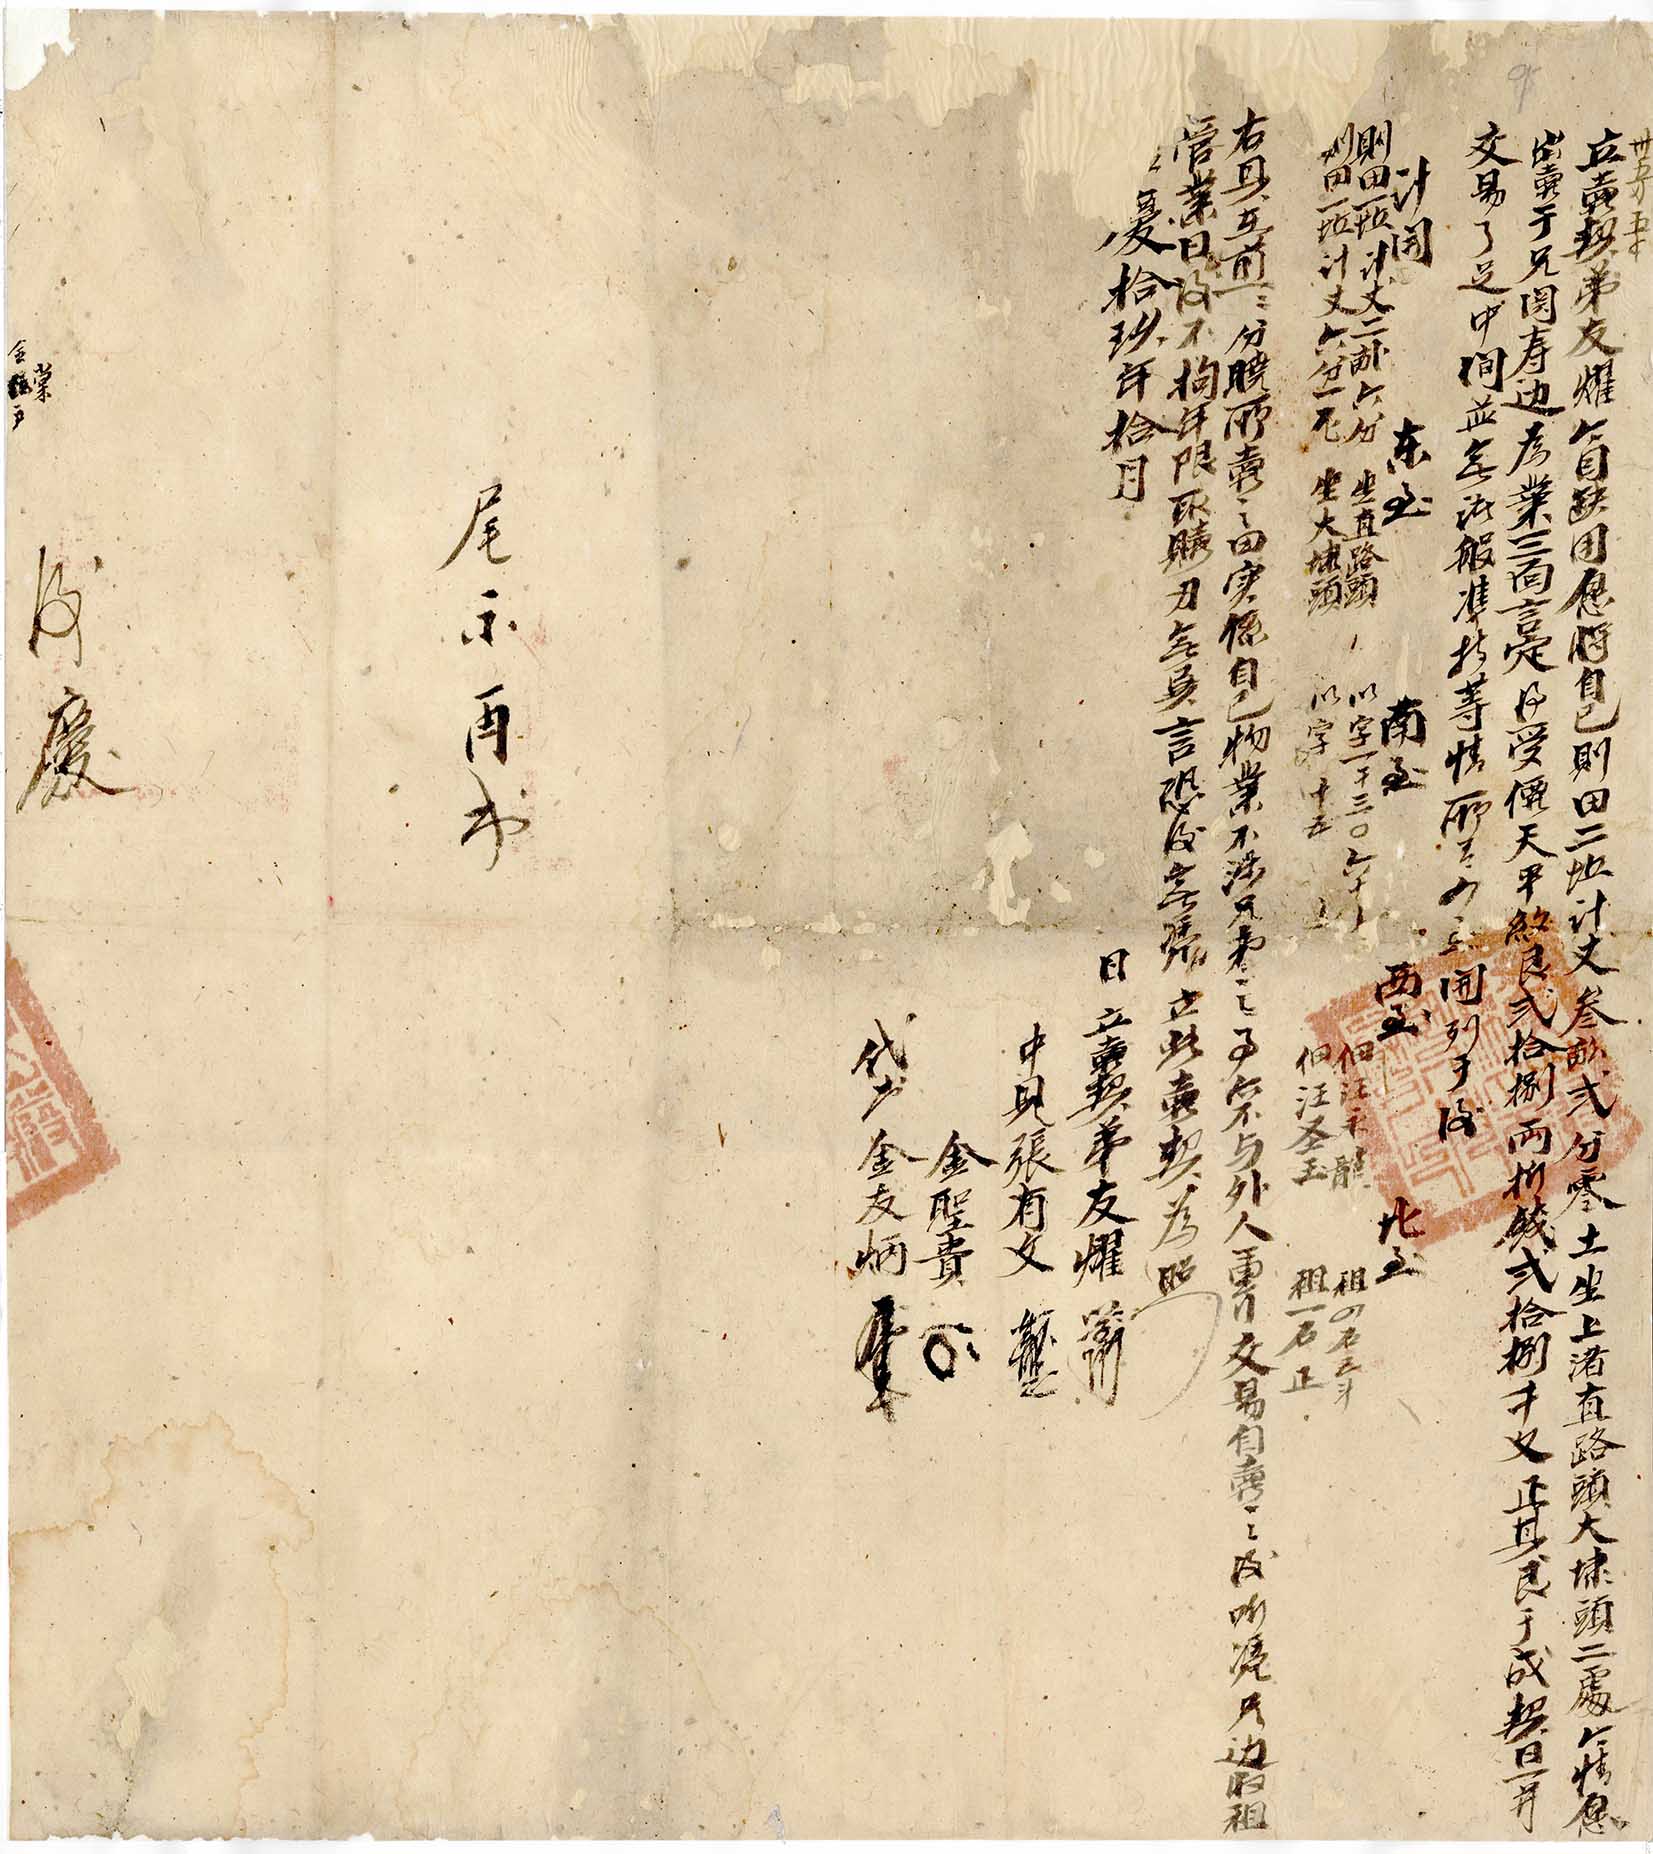 立賣契弟友燿今自缺用愿將自己則田二坵計丈叁畝弍分零土坐上渚直路頭大埭頭二處今情愿
出賣于兄閔寿边為業三面言定得受價天平紋艮弍拾捌両折錢弍拾捌千文正其艮于成契日一并
交易了足中间並無法假準折等情所有四至開列于後
计開 东至 南至 西至 北至
則田一坵计丈二畝六分 坐直路頭 以字一千三〇六十 佃汪 租四石 斗
則田一坵计丈六分一厘 坐大埭頭 以字 十五 佃汪圣玉 租一石正
右具在前一一分曉所賣之田实係自己物業不涉兄弟之事亦不与外人重行交易自賣之後听凴兄边收租
管業日後不拘年限取贖別無異言恐後無憑立此賣契為照
慶拾玖年拾月 日立賣契弟友燿
中見張有文
金聖貴
代书金友炳
尾示酉
後慶
金
棠